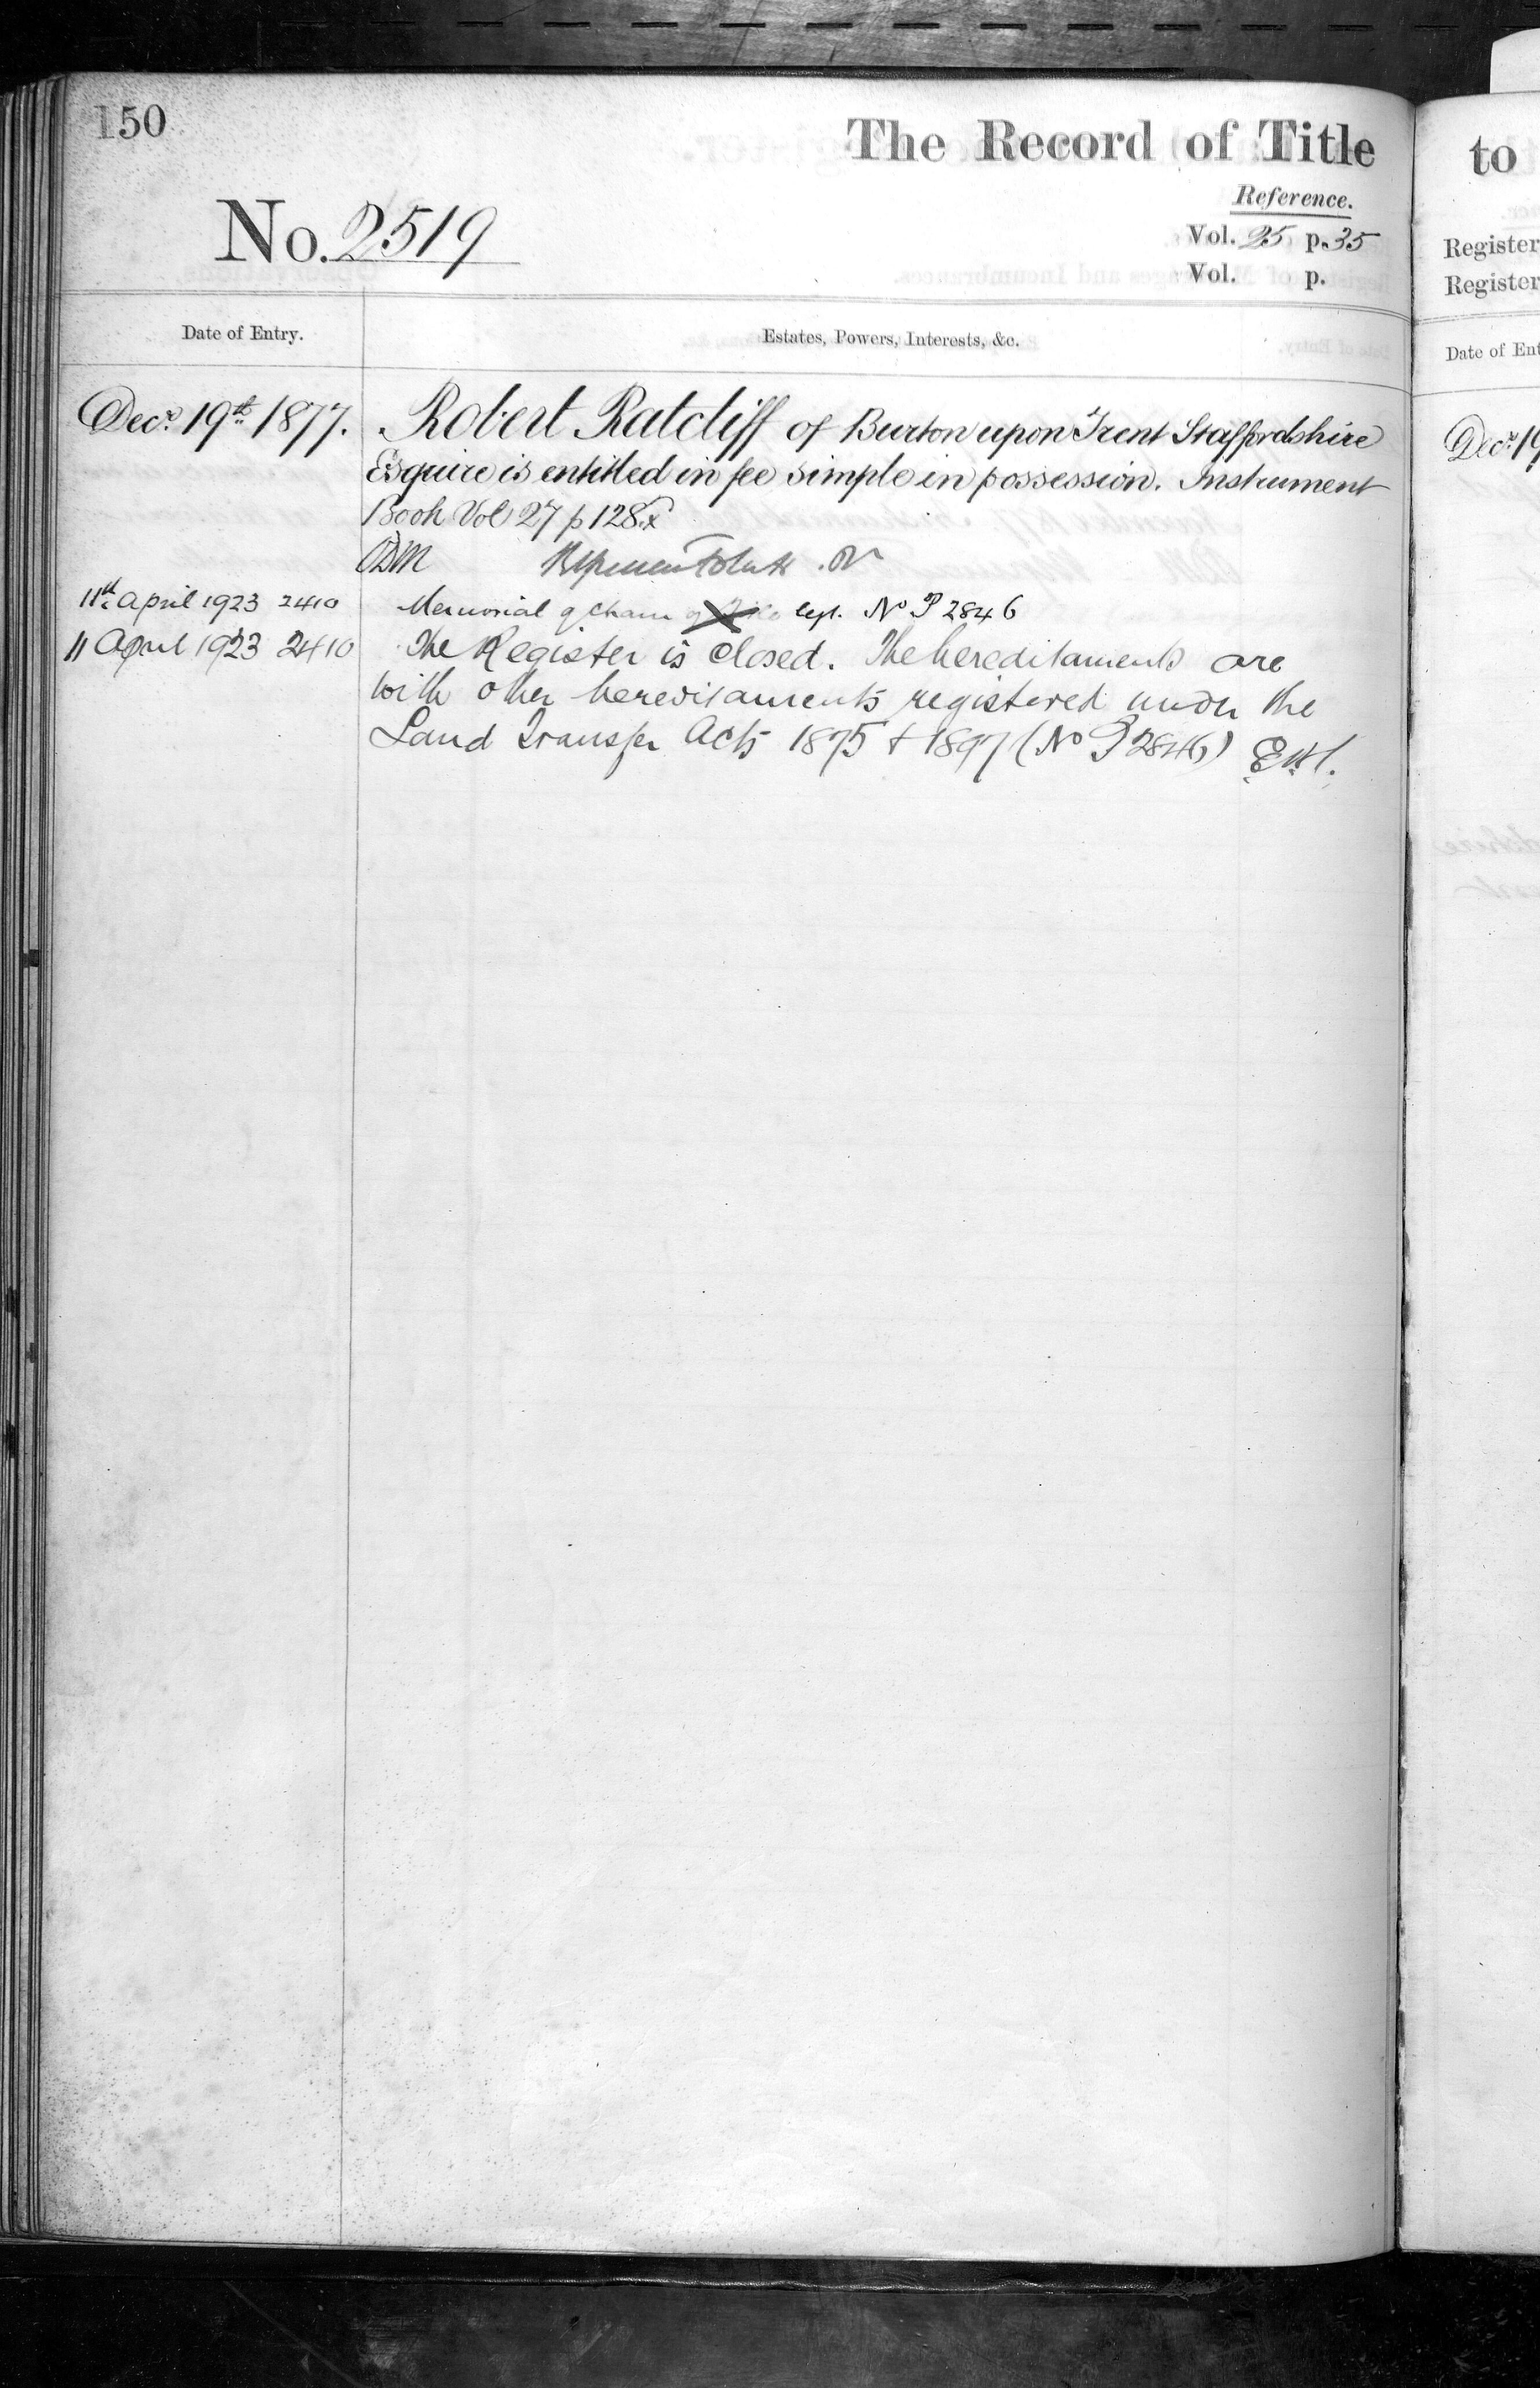 150
The Record of Title
to
Reference.
No. 2519
Vol. 25 p. 35
Vol. p.
Register
Register
Date of Entry.
Estates, Powers, Interests, &c.
Date of Ent
Decr. 19th 1877.
Robert Ratcliff of Burton upon Trent Staffordshire
Esquire is entitled in fee simple in possession. Instrument
Book Vol 27 p 128.x
Decr. 19
11th April 1923 2410
Memorial of of No P 2846
11 April 1923 2410
The Register is closed. The hereditaments are
with other hereditaments registered under the
Land Transfer Acts 1875 & 1897 (No P 2846)